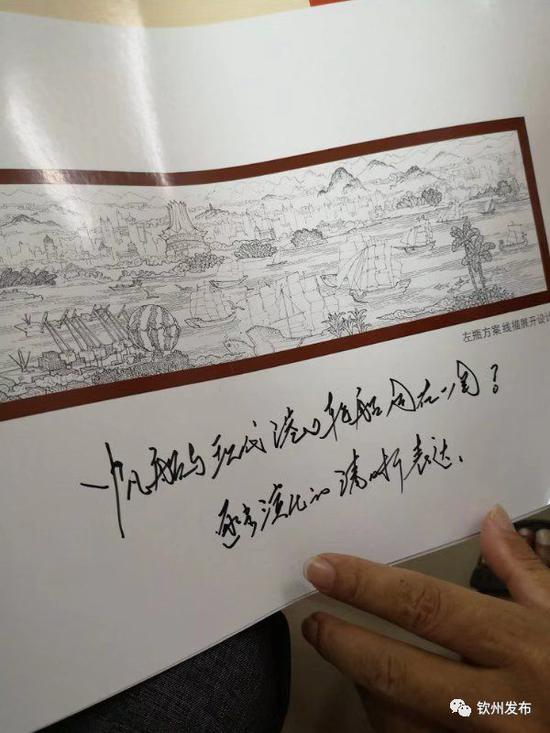 左瓶方案线描展开设计
一帆船与现代港口轮船同在一图?
逐步演化的清晰表达.
钦州发布